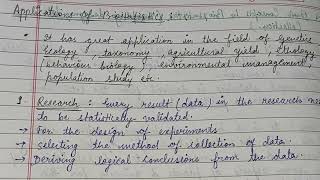 Applications of Biostatistics
• It has great application in the field of Genetics
Ecology, taxonomy, agricultural yield, ethology
(behaviour biology), environmental management,
population study etc.
1 Research : Every result (data) in the research need
to be statistically validated.
→ For the design of experiments
→ selecting the method of collection of data.
→ Deriving logical conclusions from the data.